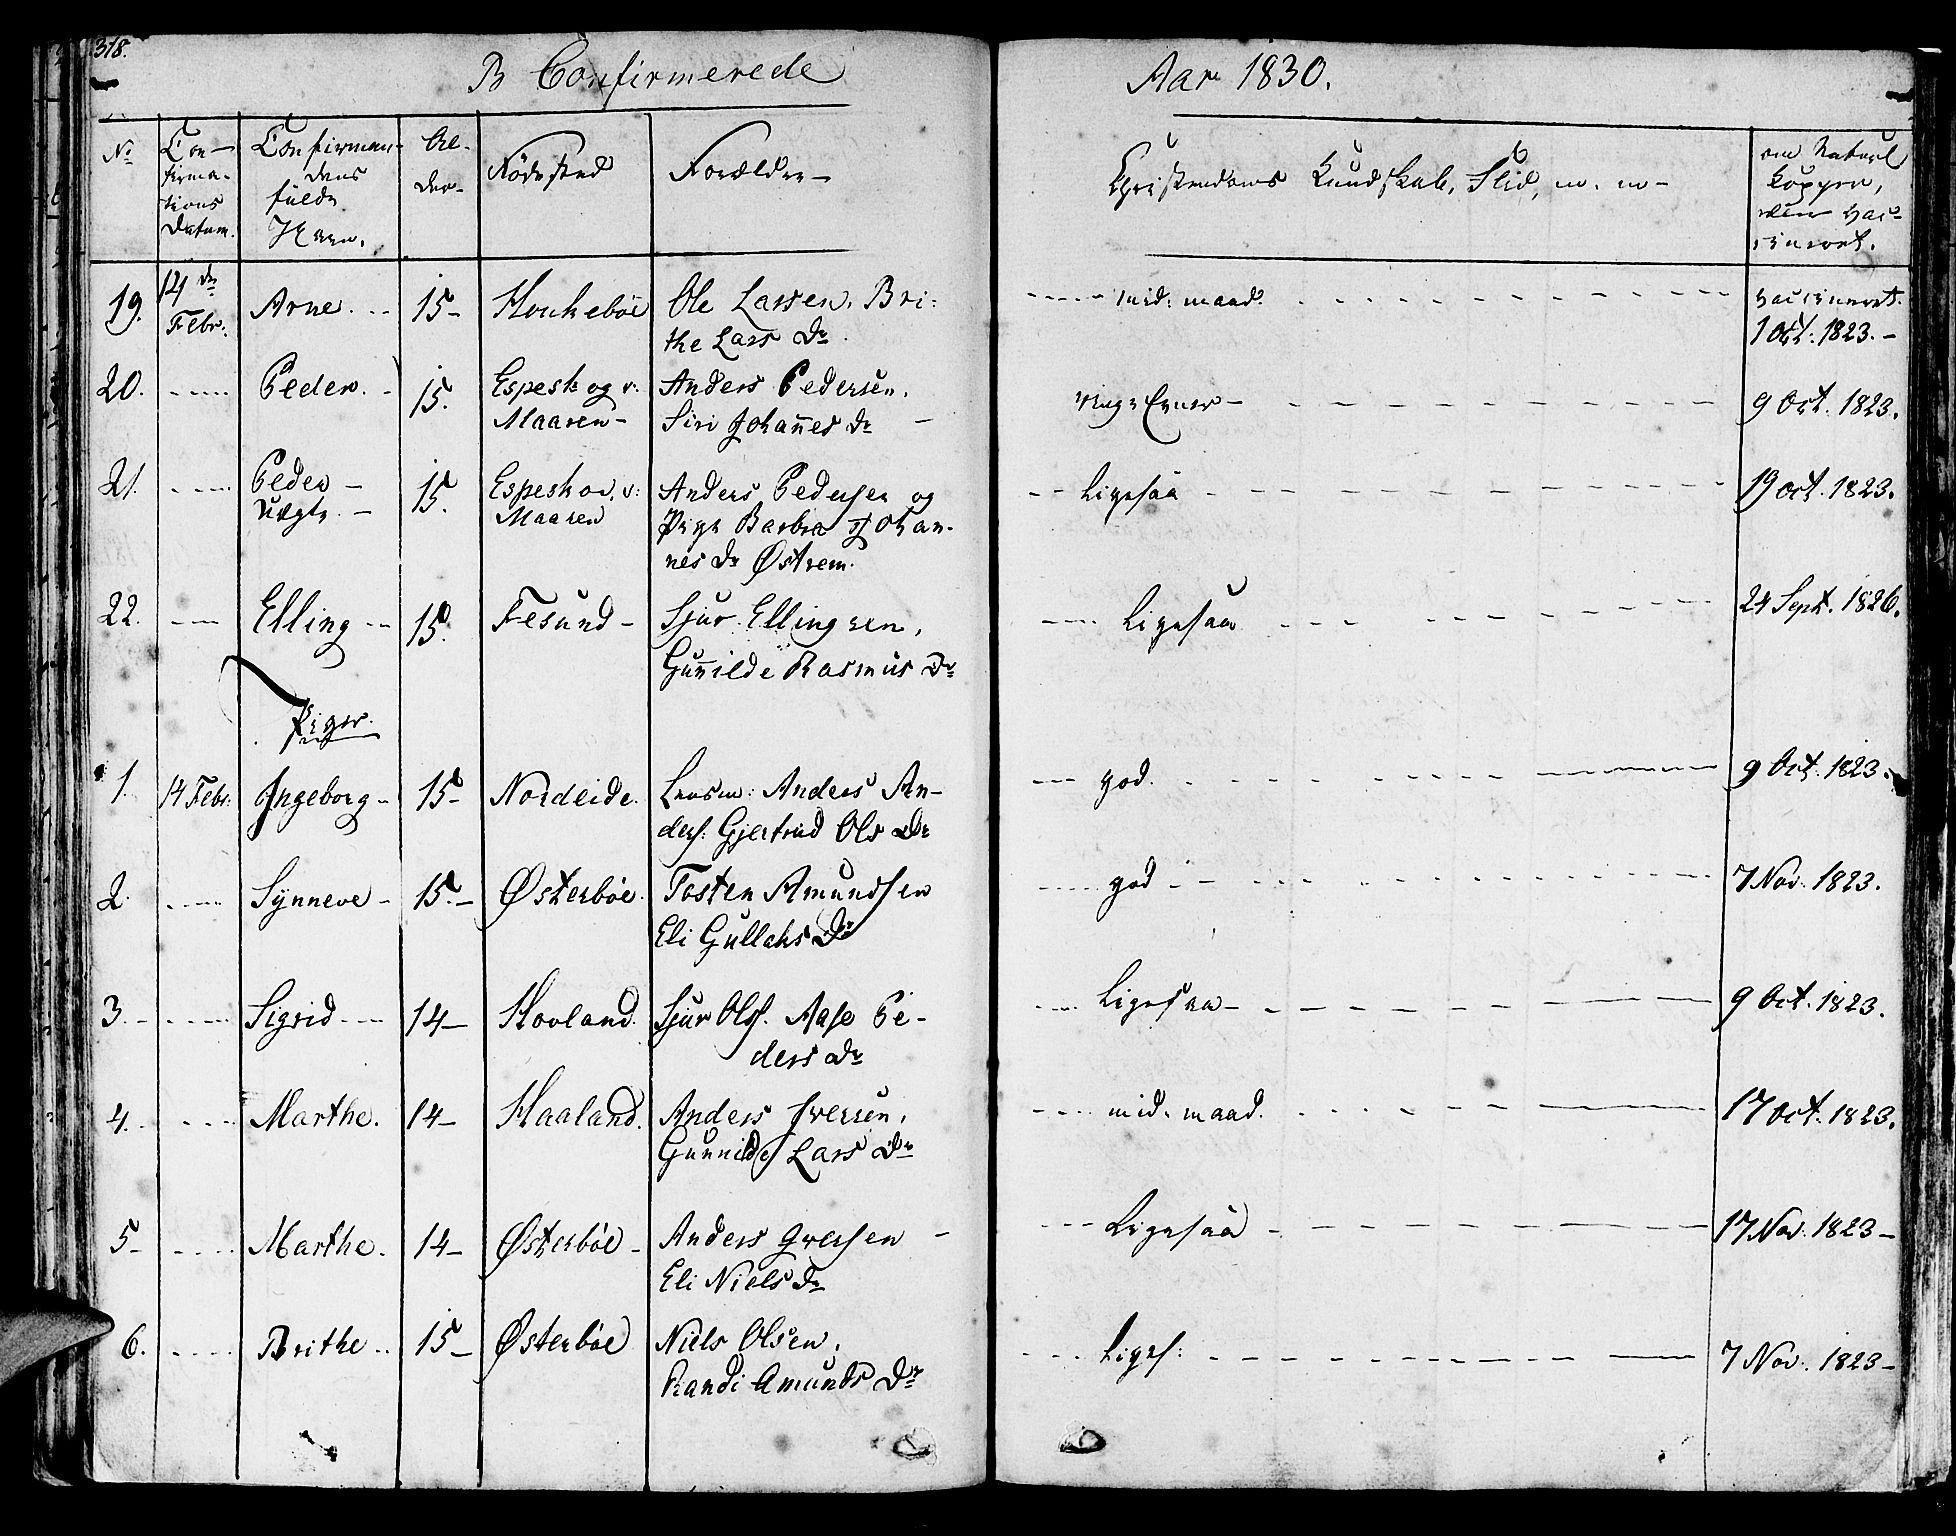 318.
B Confirmerede Aar 1830.
No Confirmations Datum. Confirmandens fulde Navn. Alder Fødested Forældre Christendoms Kundskab, Flid, m. m. om Naturl Kopper, eller vaccineret.
19. 14de Febr: Arne 15 Houkebøe Ole Lassen, Bri: mid: maad. vaccineret.
the Lars Dr. 1 Oct: 1823.
20. Peder 15. Espesk og v: Anders Pedersen, 9 Oct. 1823.
Maaren Siri Johannes Dr
21. Peder 15. Espesk v: Anders Pedersen og Ligesaa 19 Oct. 1823.
uægte Maaren Pige Barbra Johan-
nes Dr Østrem.
22. Elling 15. Fesund Sjur Ellingsen, Ligesaa 24 Sept. 1826.
Gunnilde Rasmus Dr
Piger.
1. 14 Febr: Ingeborg 15 Nordeide. Lensm: Anders An- god. 9 Oct. 1823.
ders: Gjertrud Ols Dr
2. Synneve 15. Østerbøe Tosten Amundsen god 7 Nov. 1823.
Eli Gullaks Dr
3. Sigrid 14 Hovland Sjur Ols. Aase Pe- Ligesaa 9 Oct. 1823.
ders Dr
4. Marthe. 14 Haaland. Anders Iversen, mid. maad. 17 Oct. 1823.
Gunnilde Lars Dr
5 Marthe. 14 Østerbøe Anders Iversen Ligesaa 17 Nov. 1823
Eli Niels Dr
6. Brithe 15 Østerbøe Niels Olsen, Liges: 7 Nov. 1823
Randi Amunds Dr